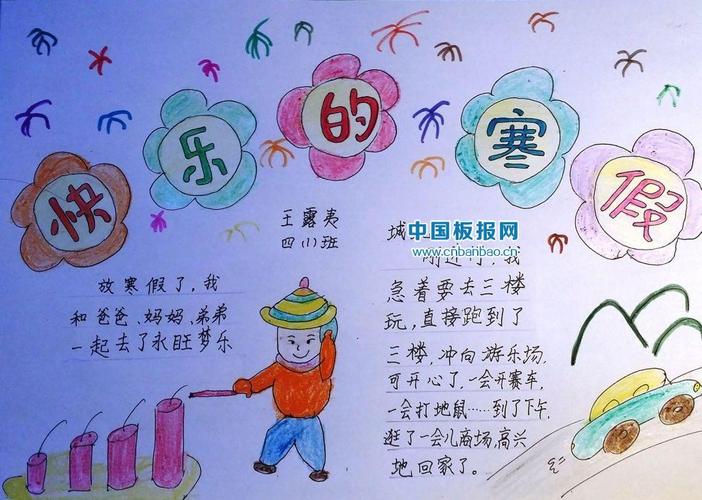 快乐的寒假
王露夷
四(1)班
放寒假了,我
和爸爸、妈妈、弟弟
一起去了永旺梦乐
城
中国板报网
www.cnbanbao.cn
我
急着要去三楼
玩,直接跑到了
三楼,冲向游乐场,
可开心了,一会开赛车,
一会打地鼠……到了下午,
逛了一会儿商场,高兴
地回家了。